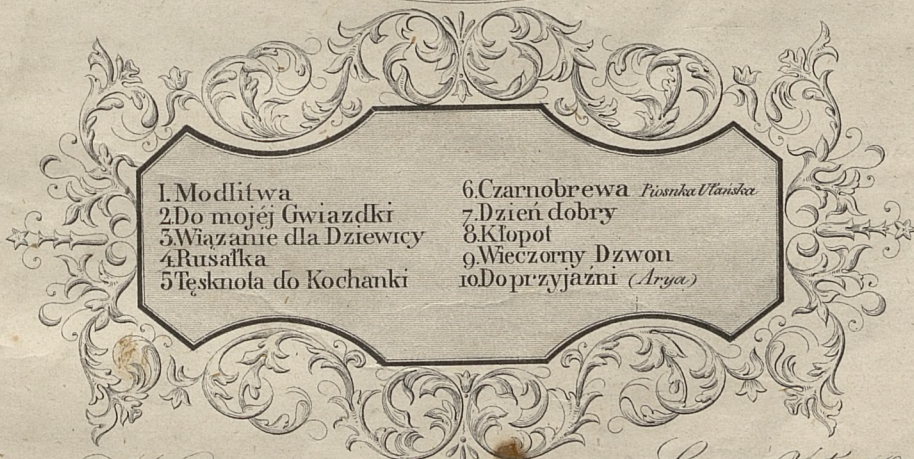 1. Modlitwa
2. Do mojéj Gwiazdki
3. Wiązanie dla Dziewicy
4. Rusałka
5 Tęsknota do Kochanki
6. Czarnobrewa Piosnka Ułańska
7. Dzień dobry
8. Kłopot
9. Wieczorny Dzwon
10. Do przyjaźni (Arya)